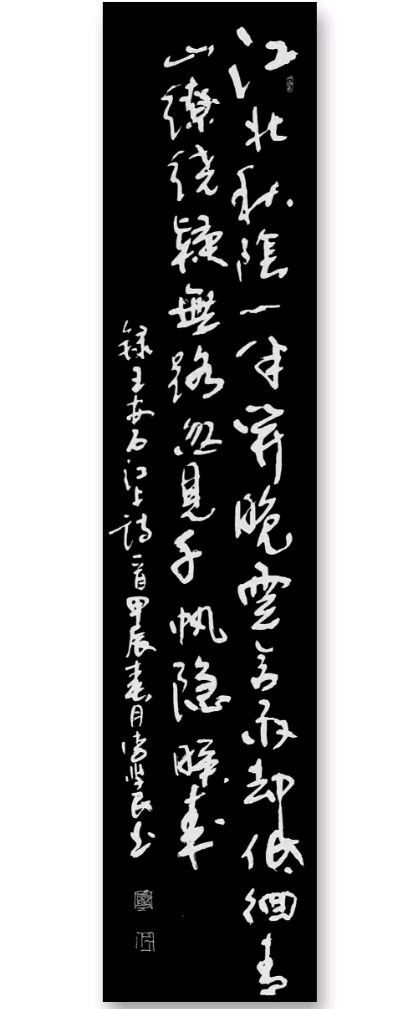 江北秋陰一半開晚雲含雨却低徊青
山繚繞疑無路忽見千帆隐映來
録王安石江上詩一首甲辰春月民书